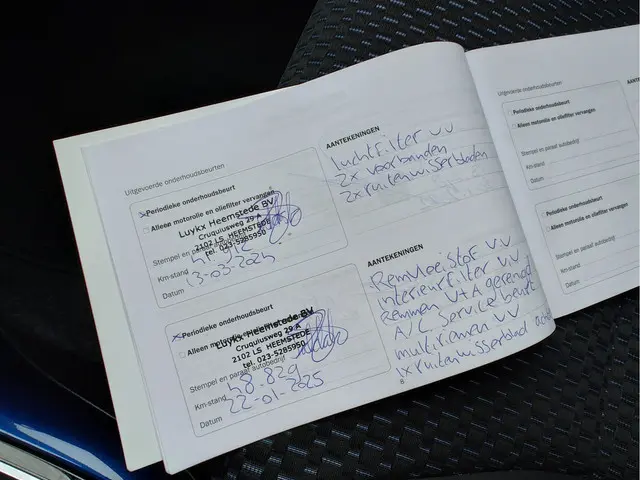 Uitgevoerde onderhoudsbeurten
Periodieke onderhoudsbeurt
Alleen motorolie en oliefilter vervangen
Luykx Heemstede BV
Cruquiusweg 29 A
2102 LS HEEMSTEDE
tel. 023-5285950
Stempel en paraaf autobedrijf
Km-stand
Datum 13-03-2024
AANTEKENINGEN
luchtfilter vv
2x voorbanden
2x ruitenwisserbladen
Periodieke onderhoudsbeurt
Luykx Heemstede BV
Cruquiusweg 29 A
2102 LS HEEMSTEDE
tel. 023-5285950
Stempel en paraaf autobedrijf
Km-stand 48.829
Datum 22-01-2025
AANTEKENINGEN
Remvloeistof vv
interieurfilter vv
Remmen V+A gereinigd
A/C Service beurt
multiriemen vv
1x ruitenwisserblad
8
Uitgevoerde onderhoudsbeurten
Periodieke onderhoudsbeurt
Alleen motorolie en oliefilter vervangen
Stempel en paraaf autobedrijf
Km-stand
Datum
Periodieke onderhoudsbeurt
Alleen motorolie en oliefilter vervangen
Stempel en paraaf autobedrijf
Km-stand
Datum